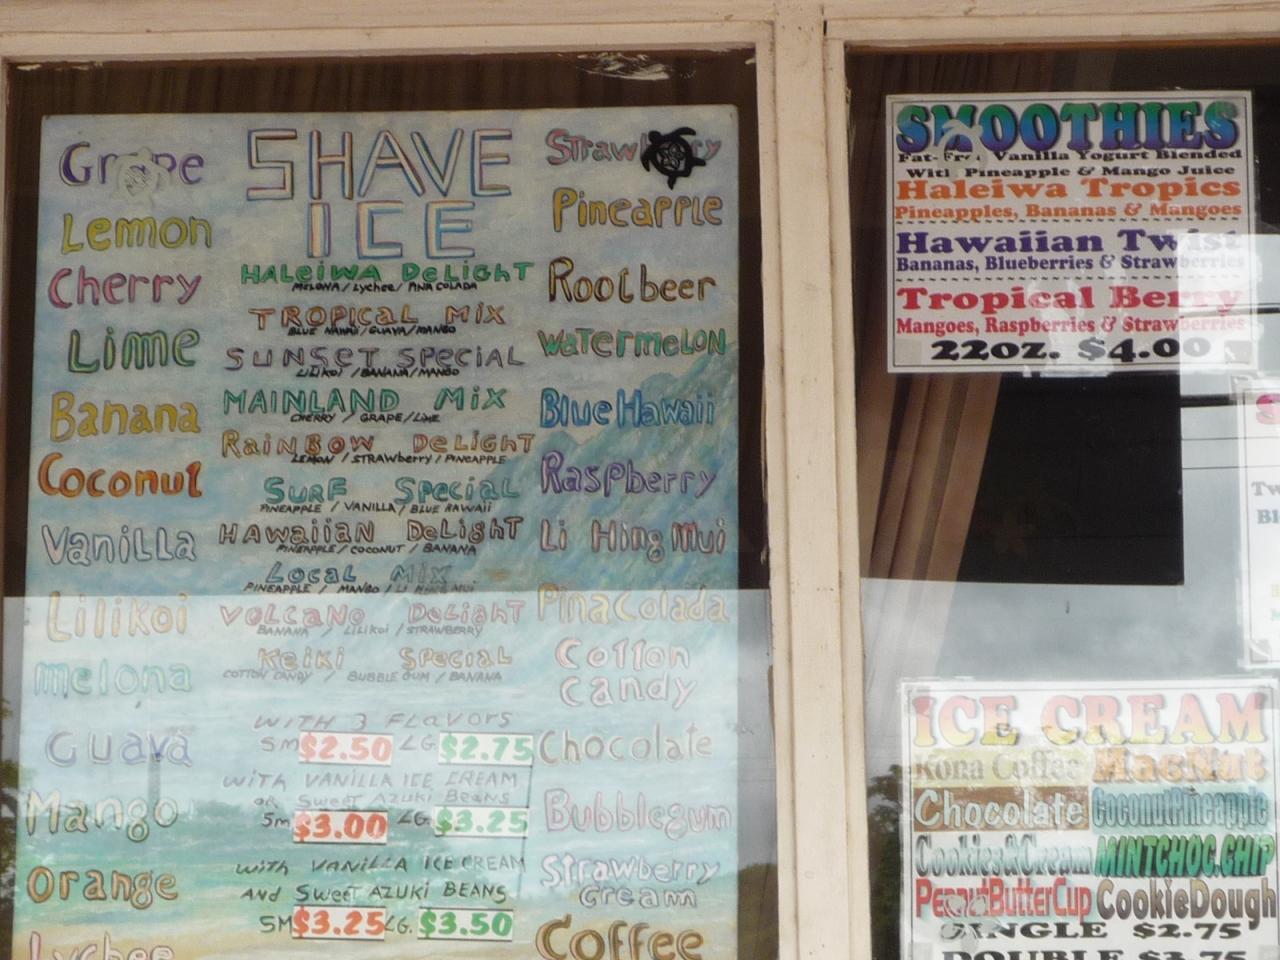 SHAVE
ICE
Grape
Lemon
Cherry
Lime
Banana
Coconut
Vanilla
Lilikoi
melona
Guava
Mango
Orange
Lychee
HALEIWA DELIGHT
MELONA / Lychee / PINA COLADA
TROPICAL MIX
BLUE HAWAII / GUAVA / MANGO
SUNSET SPECIAL
LILIKOI / BANANA / MANGO
MAINLAND MIX
CHERRY / GRAPE / LIME
RAINBOW DELIGHT
LEMON / STRAWBERRY / PINEAPPLE
SURF SPECIAL
PINEAPPLE / VANILLA / BLUE HAWAII
HAWAIIAN DELIGHT
PINEAPPLE / COCONUT / BANANA
LOCAL MIX
PINEAPPLE / MANGO / LI HING MUI
VOLCANO DELIGHT
BANANA / LILIKOI / STRAWBERRY
KEIKI SPECIAL
COTTON CANDY / BUBBLE GUM / BANANA
WITH 3 FLAVORS
SM $2.50 LG $2.75
WITH VANILLA ICE CREAM
OR Sweet AZUKI BEANS
Sm $3.00 LG. $3.25
with VANILLA ICE CREAM
AND Sweet AZUKI BEANS
SM $3.25 LG. $3.50
Strawberry
Pineapple
Rootbeer
WATERMELON
Blue Hawaii
Raspberry
Li Hing Mui
Pina Colada
Cotton
Candy
Chocolate
Bubblegum
Strawberry
Cream
Coffee
SMOOTHIES
Fat-Free Vanilla Yogurt Blended
With Pineapple & Mango Juice
Haleiwa Tropics
Pineapples, Bananas & Mangoes
Hawaiian Twist
Bananas, Blueberries & Strawberries
Tropical Berry
Mangoes, Raspberries & Strawberries
22oz. $4.00
ICE CREAM
Kona Coffee MacNut
Chocolate CoconutPineapple
Cookies&Cream MINTCHOC.CHIP
PeanutButterCup CookieDough
SINGLE $2.75
DOUBLE $3.75